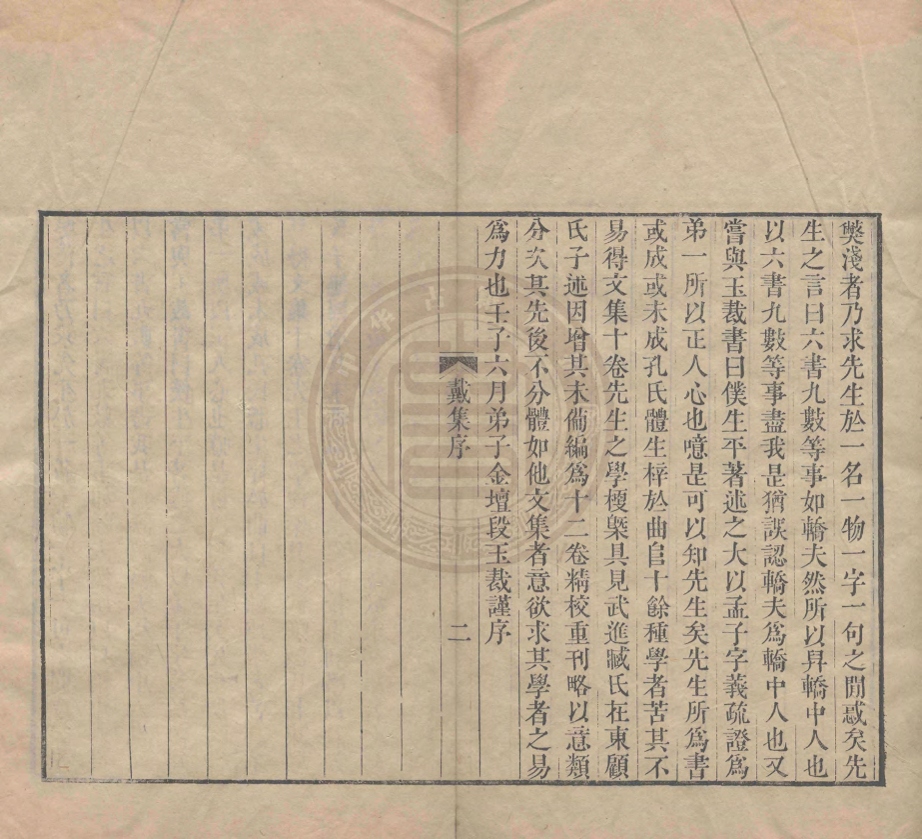 獘淺者乃求先生於一名一物一字一句之閒惑矣先
生之言曰六書九數等事如轎夫然所以舁轎中人也
以六書九數等事盡我是猶誤認轎夫爲轎中人也又
嘗與玉裁書曰僕生平著述之大以孟子字義疏證爲
弟一所以正人心也噫是可以知先生矣先生所爲書
或成或未成孔氏體生梓於曲𨸏十餘種學者苦其不
易得文集十卷先生之學梗槩具見武進臧氏在東顧
氏子述因增其未備編爲十二卷精校重刊略以意類
分次其先後不分體如他文集者意欲求其學者之易
爲力也壬子六月弟子金壇段玉裁謹序
戴集序
二